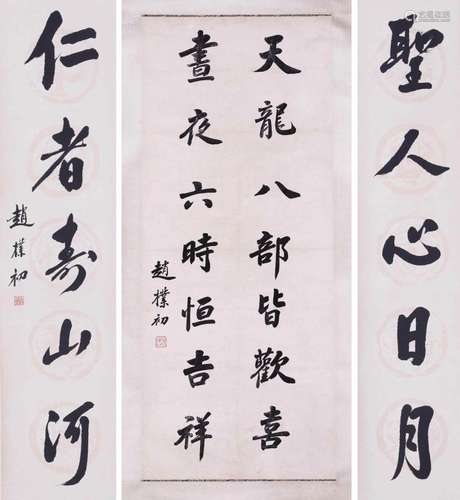 聖人心日月
天龍八部皆歡喜
晝夜六時恒吉祥
趙樸初
仁者壽山河
趙樸初